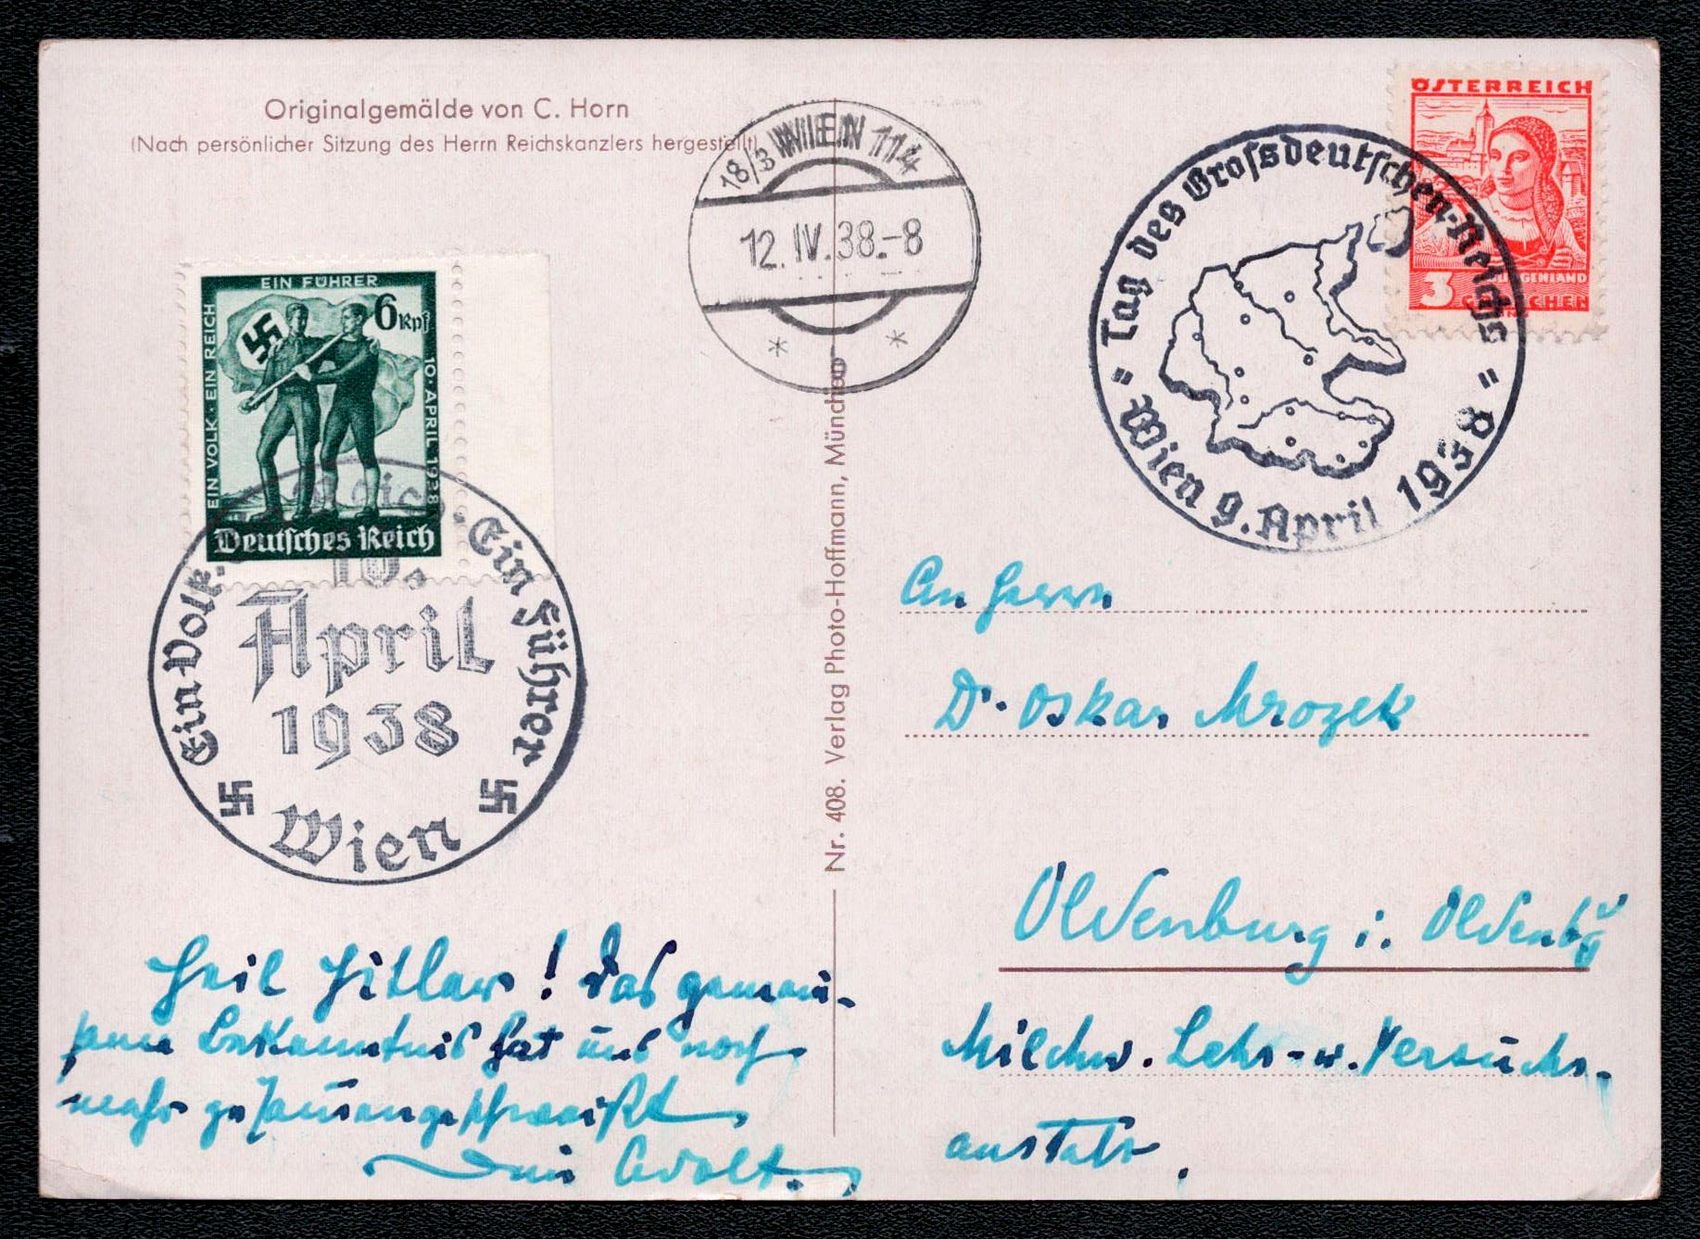 Originalgemälde von C. Horn
(Nach persönlicher Sitzung des Herrn Reichskanzlers hergestellt)
18/3 WIEN 114
12.IV.38.-8
* *
ÖSTERREICH
BURGENLAND
3 GROSCHEN
Tag des Grossdeutschen-Reichs
= Wien 9. April 1938 =
EIN VOLK · EIN REICH
EIN FÜHRER
10. APRIL 1938
6 Rpf
Deutsches Reich
Ein Volk · Ein Reich · Ein Führer
10.
April
1938
Wien
Nr. 408. Verlag Photo-Hoffmann, München
An Herrn
Dr. Oskar Mrozek
Oldenburg i. Oldenbg
Milchw. Lehr- u. Versuchs-
anstalt.
Heil Hitler! Das gemein-
same Bekenntnis hat uns noch
mehr zusammengeschweißt
Dein Adolf.